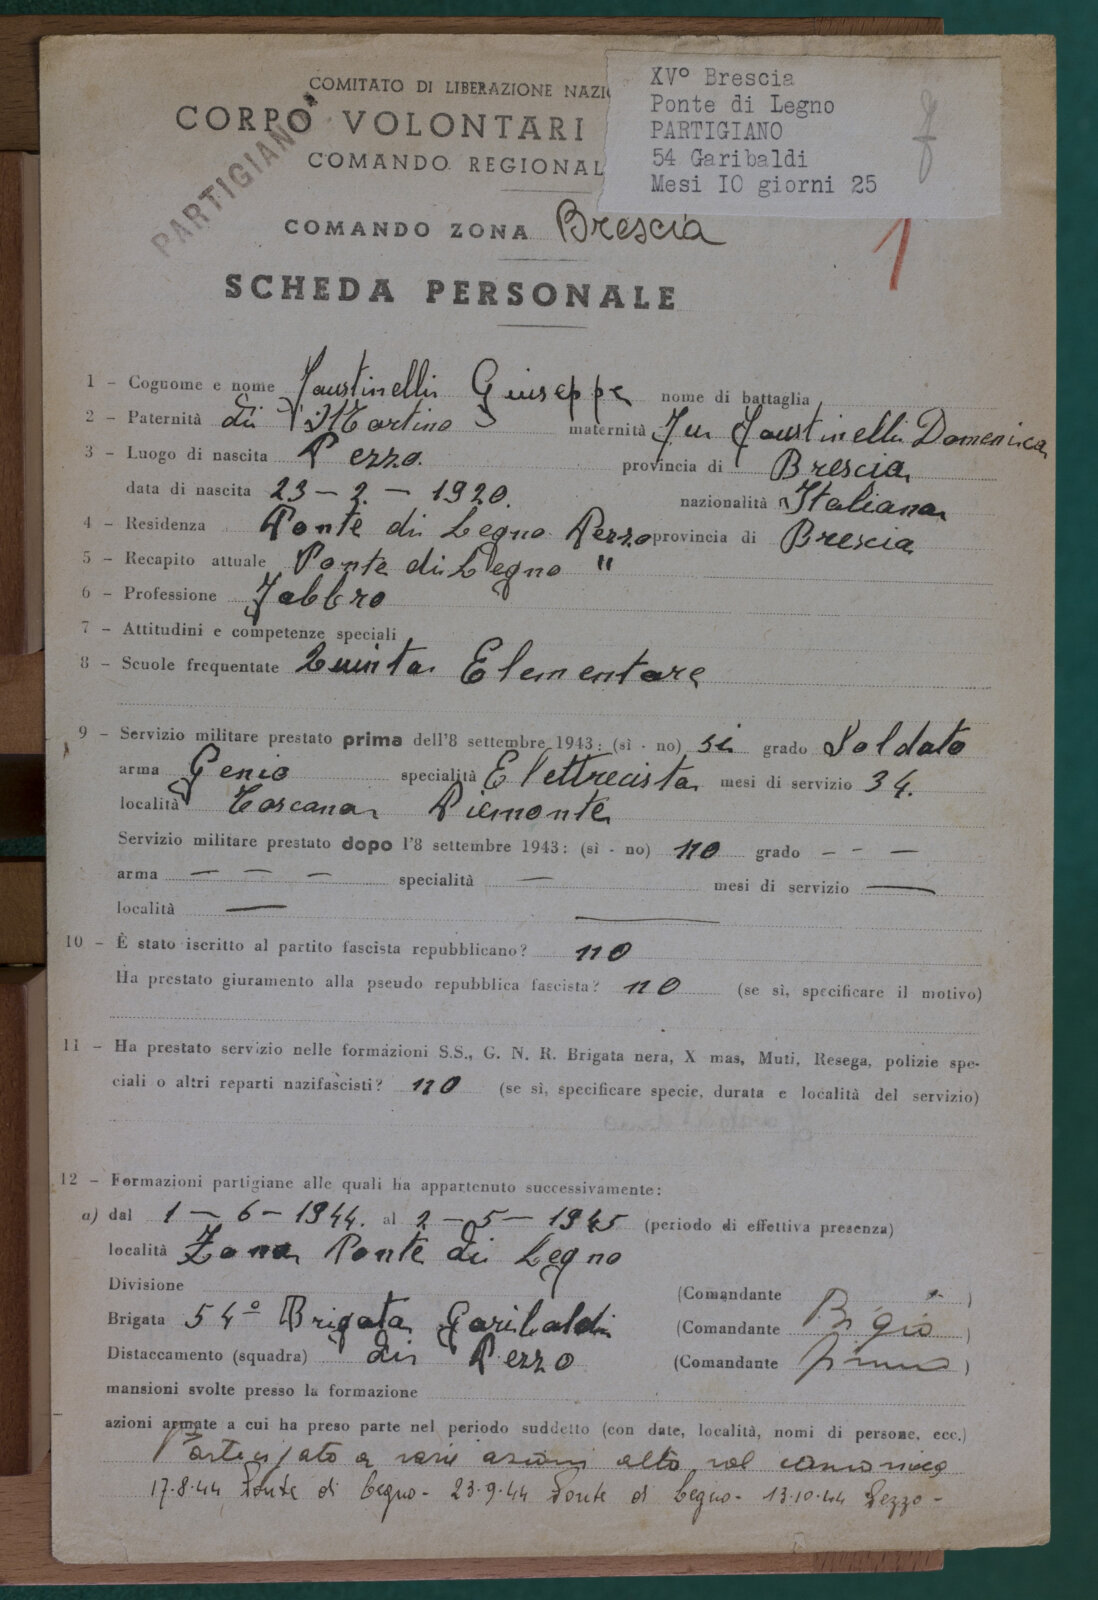 COMITATO DI LIBERAZIONE NAZI
CORPO VOLONTARI
COMANDO REGIONAL
PARTIGIANO
XV° Brescia
Ponte di Legno
PARTIGIANO
54 Garibaldi
Mesi IO giorni 25
1
COMANDO ZONA Brescia
SCHEDA PERSONALE
1 - Cognome e nome Faustinelli Giuseppe nome di battaglia
2 - Paternità di Martino maternità fu Faustinelli Domenica
3 - Luogo di nascita Pezzo provincia di Brescia
data di nascita 23-2-1920. nazionalità Italiana
4 - Residenza Ponte di Legno Pezzo provincia di Brescia
5 - Recapito attuale Ponte di Legno "
6 - Professione Fabbro
7 - Attitudini e competenze speciali
8 - Scuole frequentate Quinta Elementare
9 - Servizio militare prestato prima dell'8 settembre 1943: (sì - no) si grado Soldato
arma Genio specialità Elettrecista mesi di servizio 34.
località Toscana Piemonte
Servizio militare prestato dopo l'8 settembre 1943: (sì - no) no grado - - -
arma - - - specialità - mesi di servizio —
località —
10 - È stato iscritto al partito fascista repubblicano? no
Ha prestato giuramento alla pseudo repubblica fascista? no (se sì, specificare il motivo)
11 - Ha prestato servizio nelle formazioni S.S., G. N. R. Brigata nera, X mas, Muti, Resega, polizie spe-
ciali o altri reparti nazifascisti? no (se sì, specificare specie, durata e località del servizio)
12 - Formazioni partigiane alle quali ha appartenuto successivamente:
a) dal 1-6-1944. al 2-5-1945 (periodo di effettiva presenza)
località Zona Ponte di Legno
Divisione (Comandante )
Brigata 54° Brigata Garibaldi (Comandante Bigio )
Distaccamento (squadra) di Pezzo (Comandante )
mansioni svolte presso la formazione
azioni armate a cui ha preso parte nel periodo suddetto (con date, località, nomi di persone, ecc.)
Partecipato a varie azioni alta val camonica
17.8.44 Ponte di Legno - 23.9.44 Ponte d Legno - 13.10.44 Pezzo -